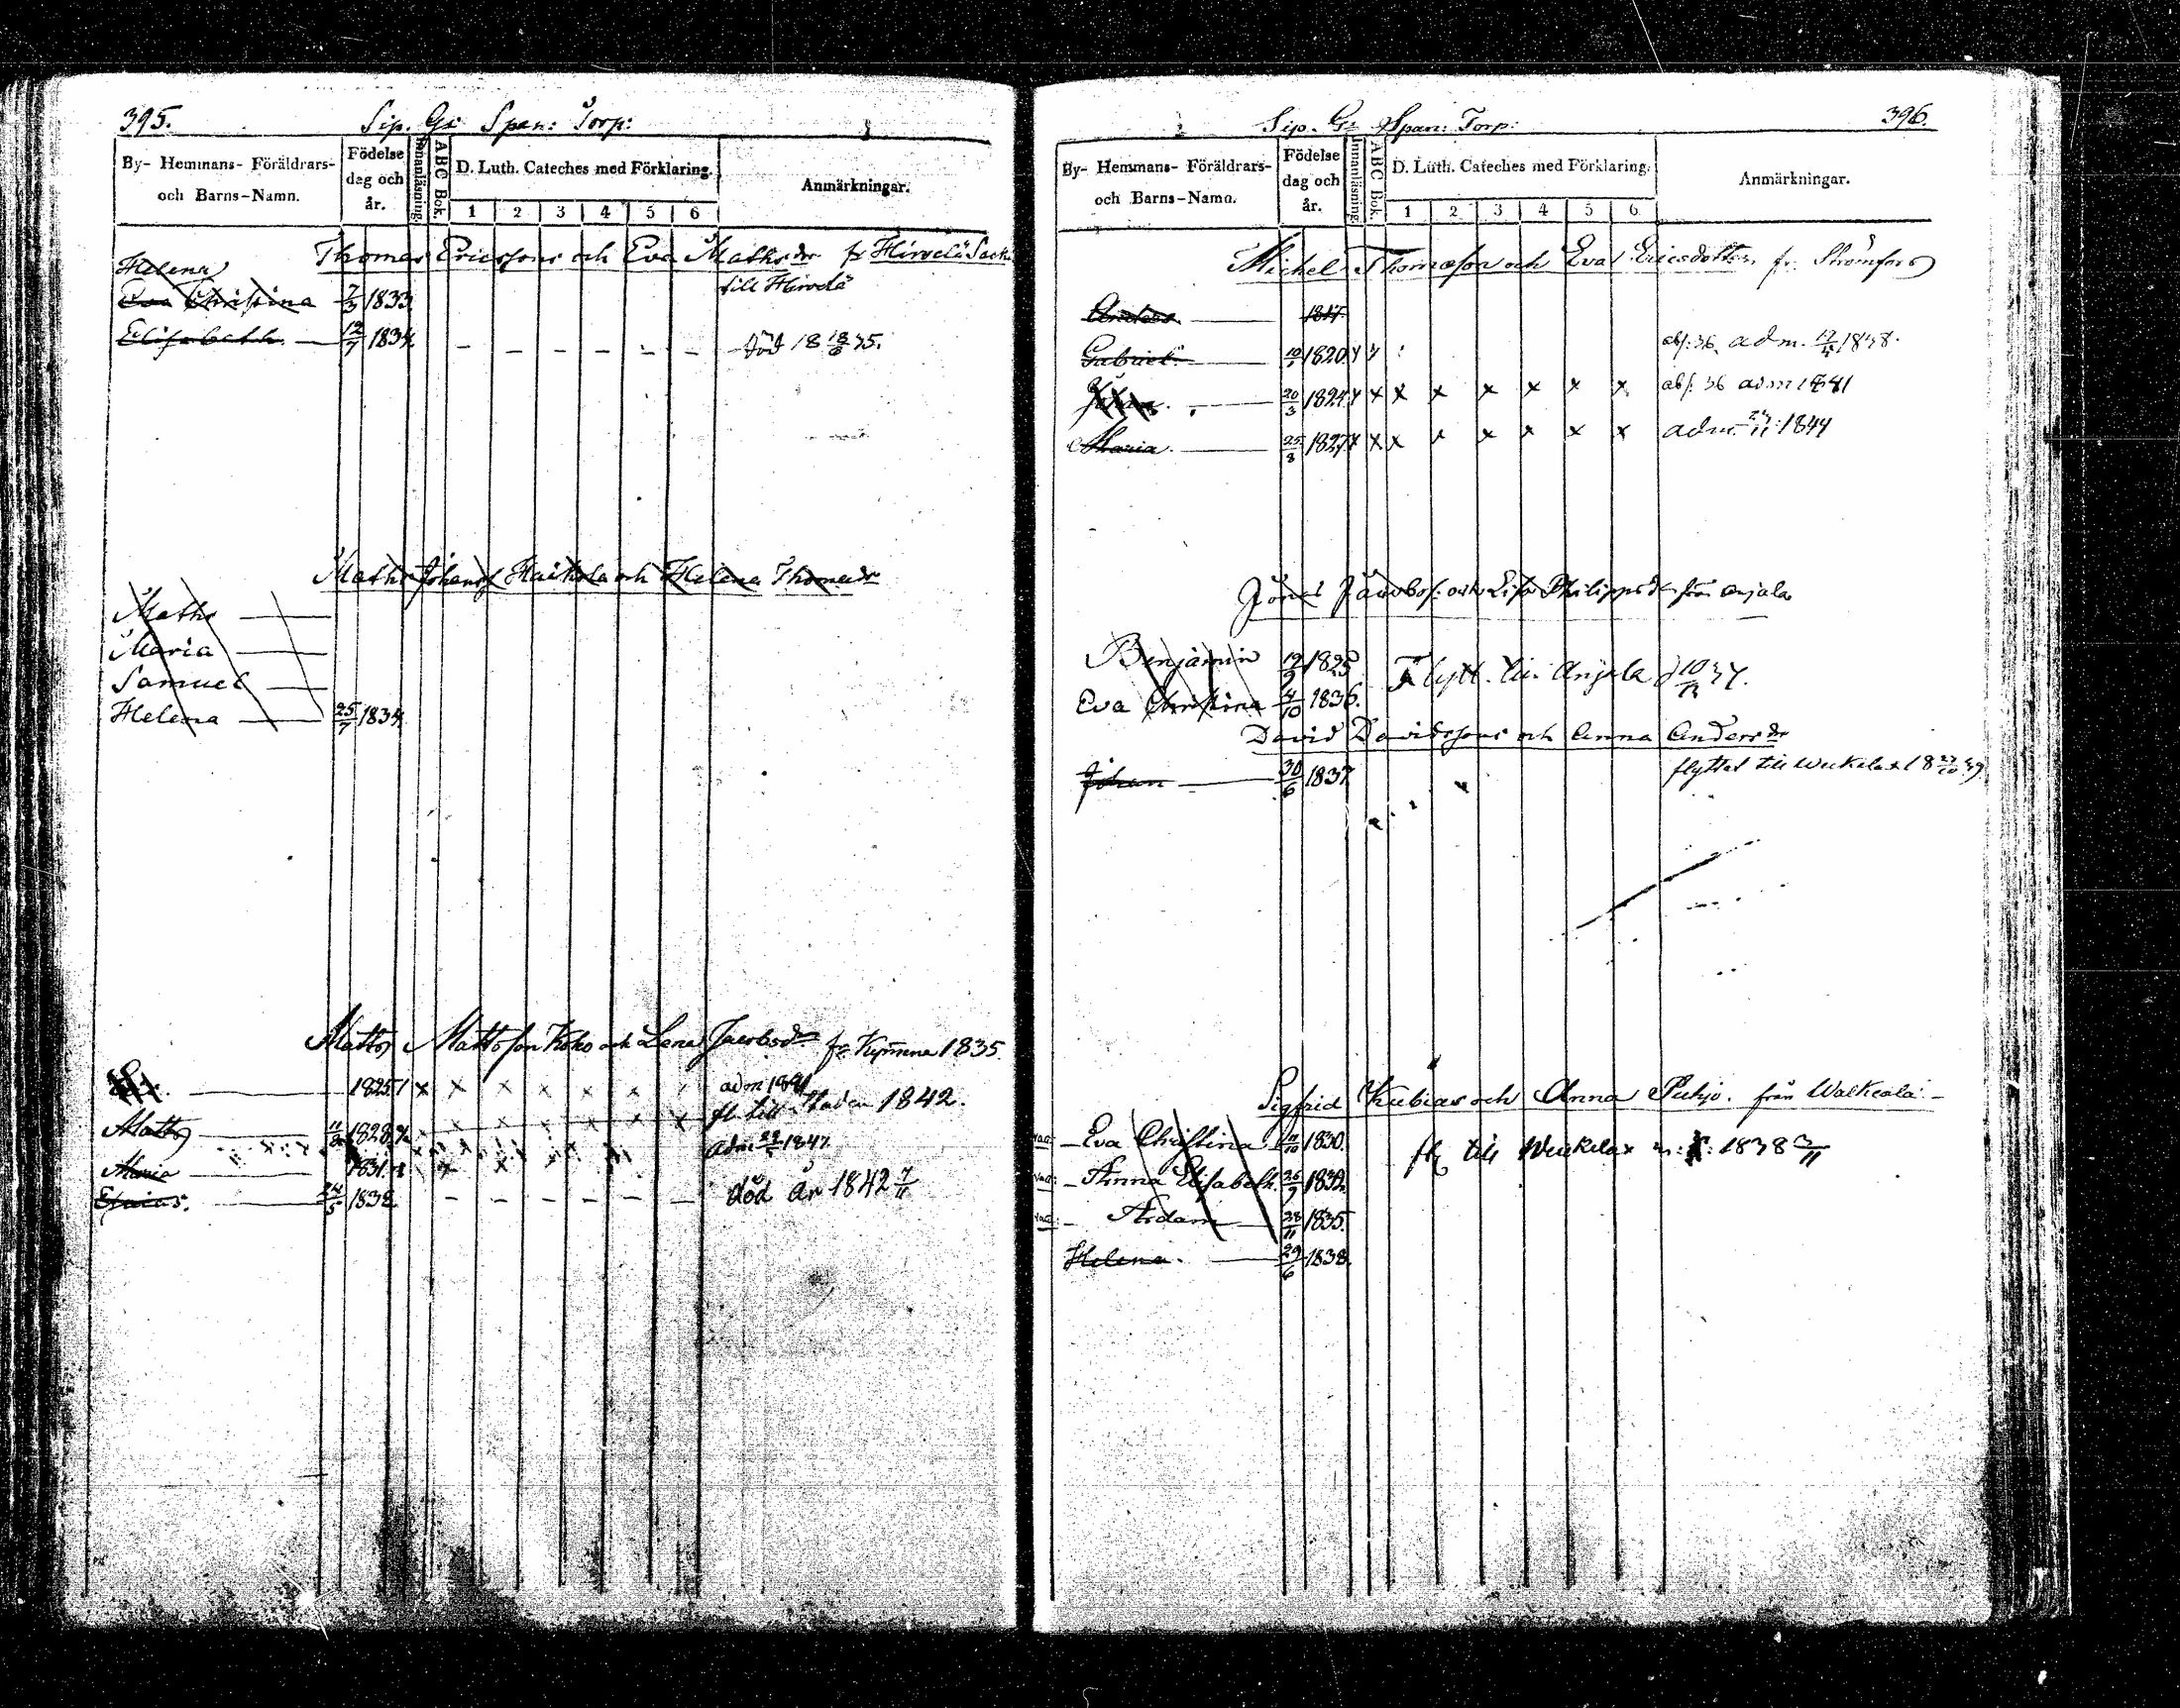 395.
Sip. Gs Span: Torp:
By- Hemmans- Föräldrars- och Barns-Namn.
Födelse dag och år.
Innanläsning.
ABC Bok.
D. Luth. Cateches med Förklaring.
1 2 3 4 5 6
Anmärkningar.
Thomas Ericssons och Eva Mathsdr fr Hirvelä
till Hirvelä
Helena
Eva Christina 7/3 1833
Elisabeth 12/7 1834. – – – – – – död 18 18/6 35.
Maths Johansf Haikola och Helena Thomasdr
Maths
Maria
Samuel
Helena 25/7 1834
Matts Mattsson Koho och Lena Jacobsdr fr Kymene 1835.
1825 x x x x x x adm 1841
fl. till Staden 1842.
Matts 1828 x x x x x x adm 1847
Maria 1831
Esaias. 24/5 1838 – – – – – – död år 1842 7/11
396.
Sip. Gs Span: Torp:
By- Hemmans- Föräldrars- och Barns-Namn.
Födelse dag och år.
Innanläsning.
ABC Bok.
D. Luth. Cateches med Förklaring.
1 2 3 4 5 6
Anmärkningar.
Michel Thomasson och Eva Ericsdotter fr. Strömfors
Anders 1817
Gabriel 1820 abs: 36. adm. 1838.
20/3 1824 x x x x x x x abs. 36 adm 1841
Maria 25/8 1827 x x x x x x x adm. 1844
Jonas Jacobs: och Lisa Philippsdr från Anjala
Benjamin 1825 Flytt. till Anjala
Eva Christina 4/10 1836.
David Davidssons och Anna Andersdr
Johan 30/6 1837 flyttat till Weckelax
Sigfrid Kubias och Anna Puhjo. från Walkeala
Eva Christina 11/10 1830. fl till Weckelax 1838
Anna Elisabeth. 26/9 1832
Adam 28/11 1835.
Helena. 29/6 1838.